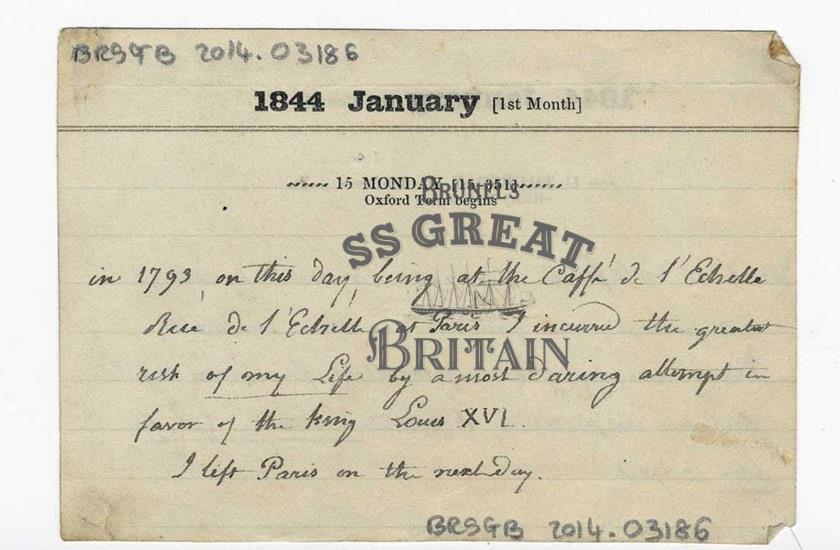 BRSGB 2014.03186
1844 January [1st Month]
15 MONDAY [15-351]
Oxford Term begins
BRUNEL'S
SS GREAT
BRITAIN
in 1793, on this day, being at the Caffé de l'Echelle
Rue de l'Echelle, at Paris I incurred the greatest
risk of my Life by a most daring attempt in
favor of the king Louis XVI.
I left Paris on the next day.
BRSGB 2014.03186